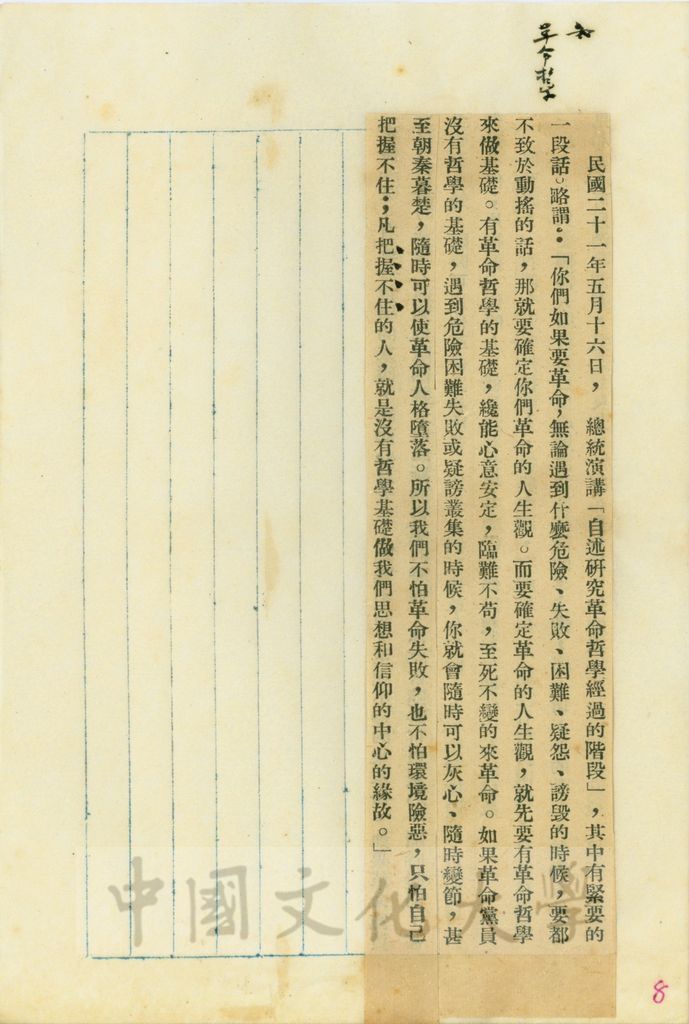 革命哲学
民國二十一年五月十六日，　總統演講「自述研究革命哲學經過的階段」，其中有緊要的
一段話。略謂：「你們如果要革命，無論遇到什麼危險、失敗、困難、疑怨、謗毀的時候，要都
不致於動搖的話，那就要確定你們革命的人生觀。而要確定革命的人生觀，就先要有革命哲學
來做基礎。有革命哲學的基礎，纔能心意安定，臨難不苟，至死不變的來革命。如果革命黨員
沒有哲學的基礎，遇到危險困難失敗或疑謗叢集的時候，你就會隨時可以灰心、隨時變節，甚
至朝秦暮楚，隨時可以使革命人格墮落。所以我們不怕革命失敗，也不怕環境險惡，只怕自己
把握不住；凡把握不住的人，就是沒有哲學基礎做我們思想和信仰的中心的緣故。」
中國文化大學
8